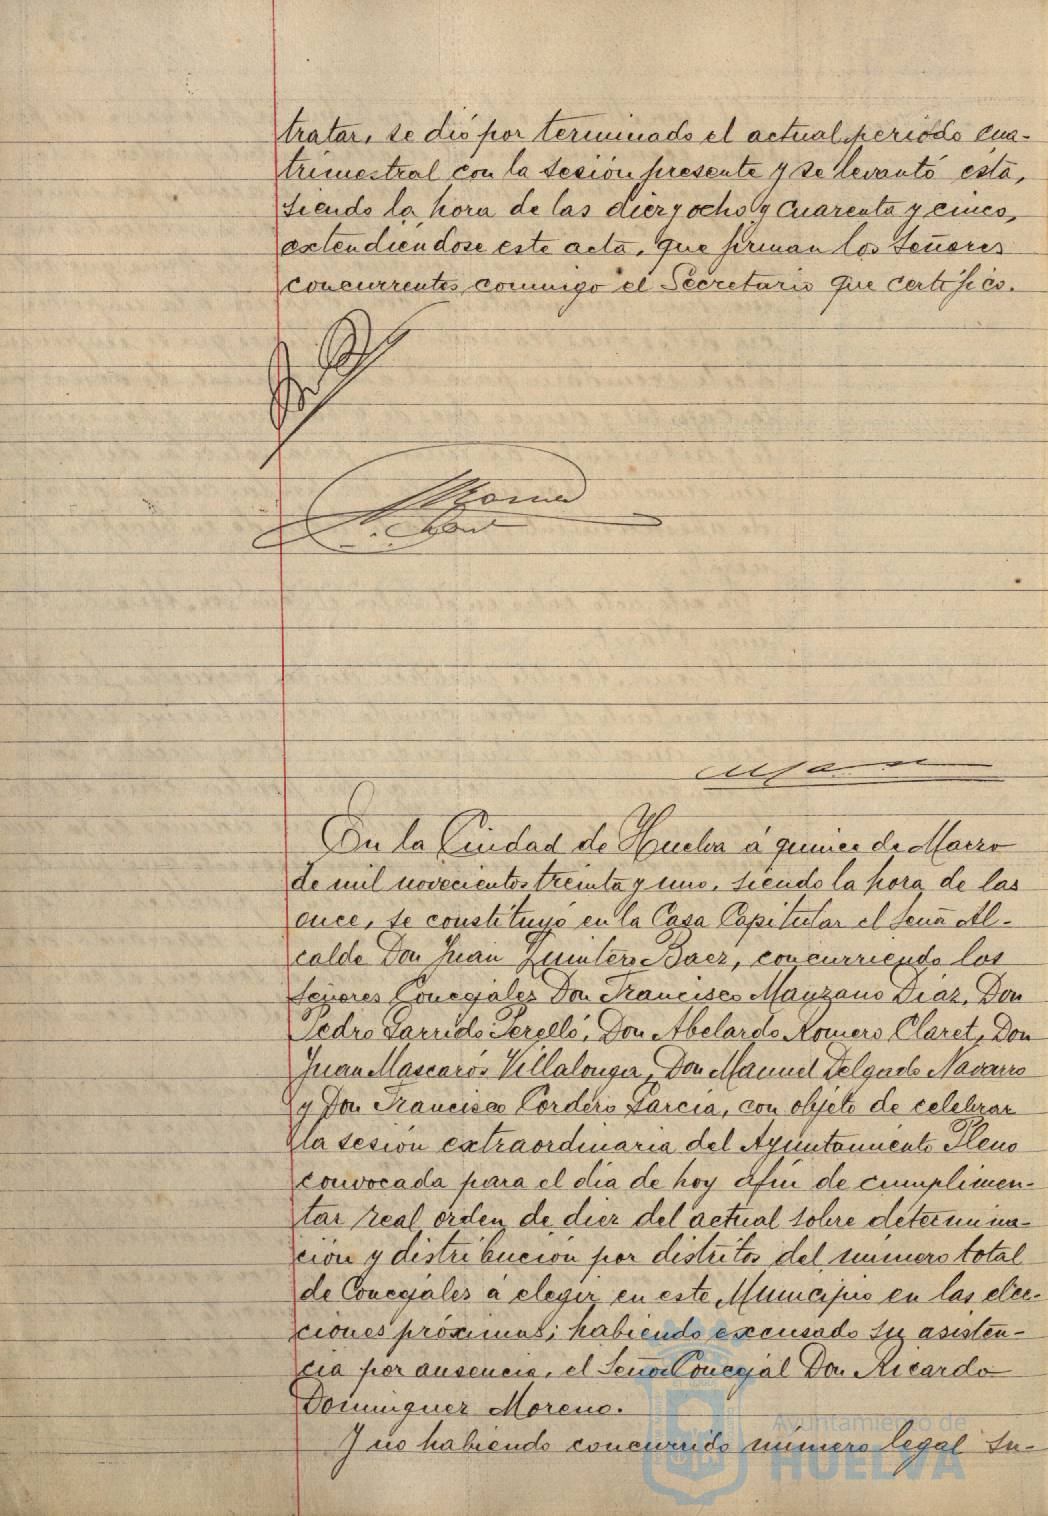 tratar, se dió por terminado el actual periódo cua-
trimestral con la sesión presente y se levantó ésta,
siendo la hora de las diez y ocho y cuarenta y cinco,
extendiéndose este acta, que firman los Señores
concurrentes conmigo el Secretario que certifico.
ARomero
Claret
En la Ciudad de Huelva á quince de Marzo
de mil novecientos treinta y uno, siendo la hora de las
once, se constituyó en la Casa Capitular el Señr Al-
calde Don Juan Quintero Baez, concurriendo los
Señores Concejales Don Francisco Manzano Díaz, Don
Pedro Garrido Perelló, Don Abelardo Romero Claret, Don
Juan Mascarós Villalonga, Don Manuel Delgado Navarro
y Don Francisco Cordero García, con objeto de celebrar
la sesión extraordinaria del Ayuntamiento Pleno
convocada para el día de hoy afin de cumplimen-
tar real orden de diez del actual sobre determina-
ción y distribución por distritos del número total
de Concejales á elegir en este Municipio en las elec-
ciones próximas; habiendo excusado su asisten-
cia por ausencia, el Señor Concejal Don Ricardo
Dominguez Moreno.
Y no habiendo concurrido número legal su-
Ayuntamiento de
HUELVA